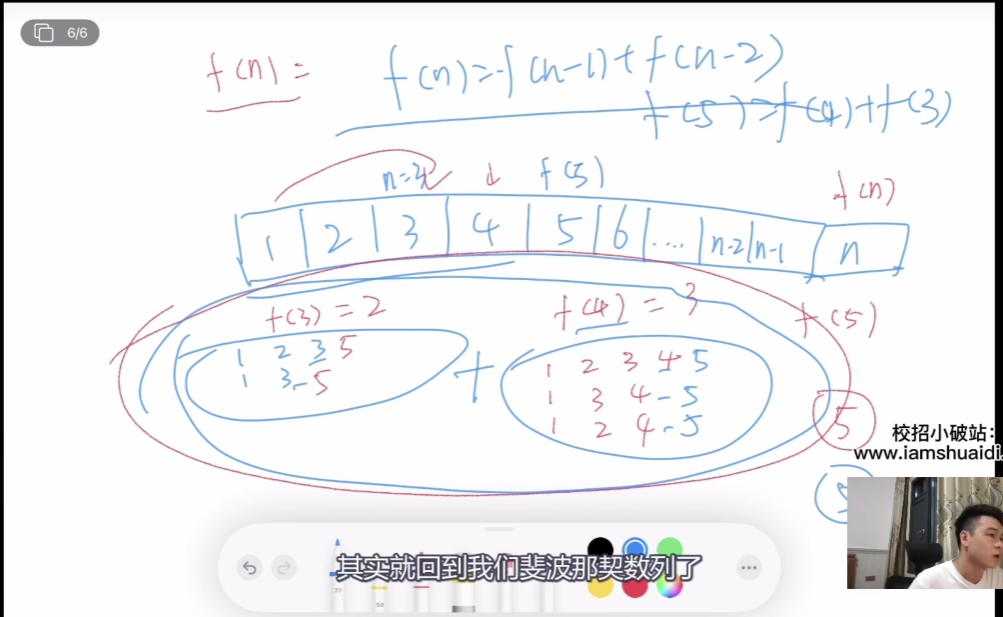 6/6
f(n)=
f(n)=f(n-1)+f(n-2)
f(5)=f(4)+f(3)
f(5)
f(n)
1 2 3 4 5 6 .... n-2 n-1 n
f(3)=2
f(4)=3
f(5)
1 2 3 5
1 3-5
+
1 2 3 4 5
1 3 4-5
1 2 4-5
5
校招小破站:
www.iamshuaidi.
其实就回到我们斐波那契数列了